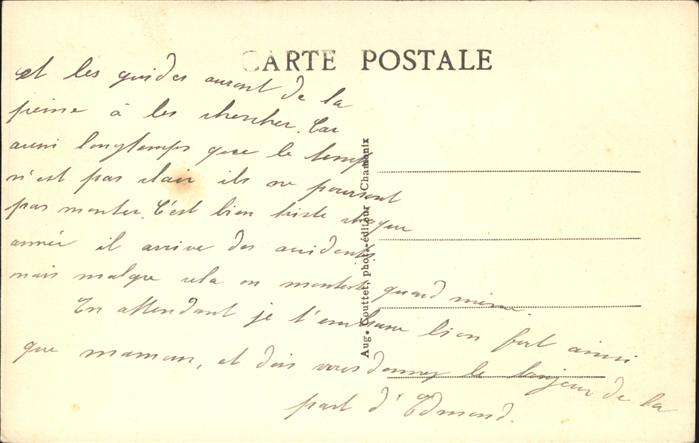 CARTE POSTALE
et les guides auront de la
peine à les chercher. Car
aussi longtemps que le temps
n'est pas clair ils ne pourront
pas monter. C'est bien triste chaque
année il arrive des accidents
mais malgre cela on monte quand même.
En attendant je t'embrasse bien fort ainsi
que maman, et dois vous donner le bonjour de la
part d'Edmond.
Aug. Couttet, photo-éditeur - Chamonix